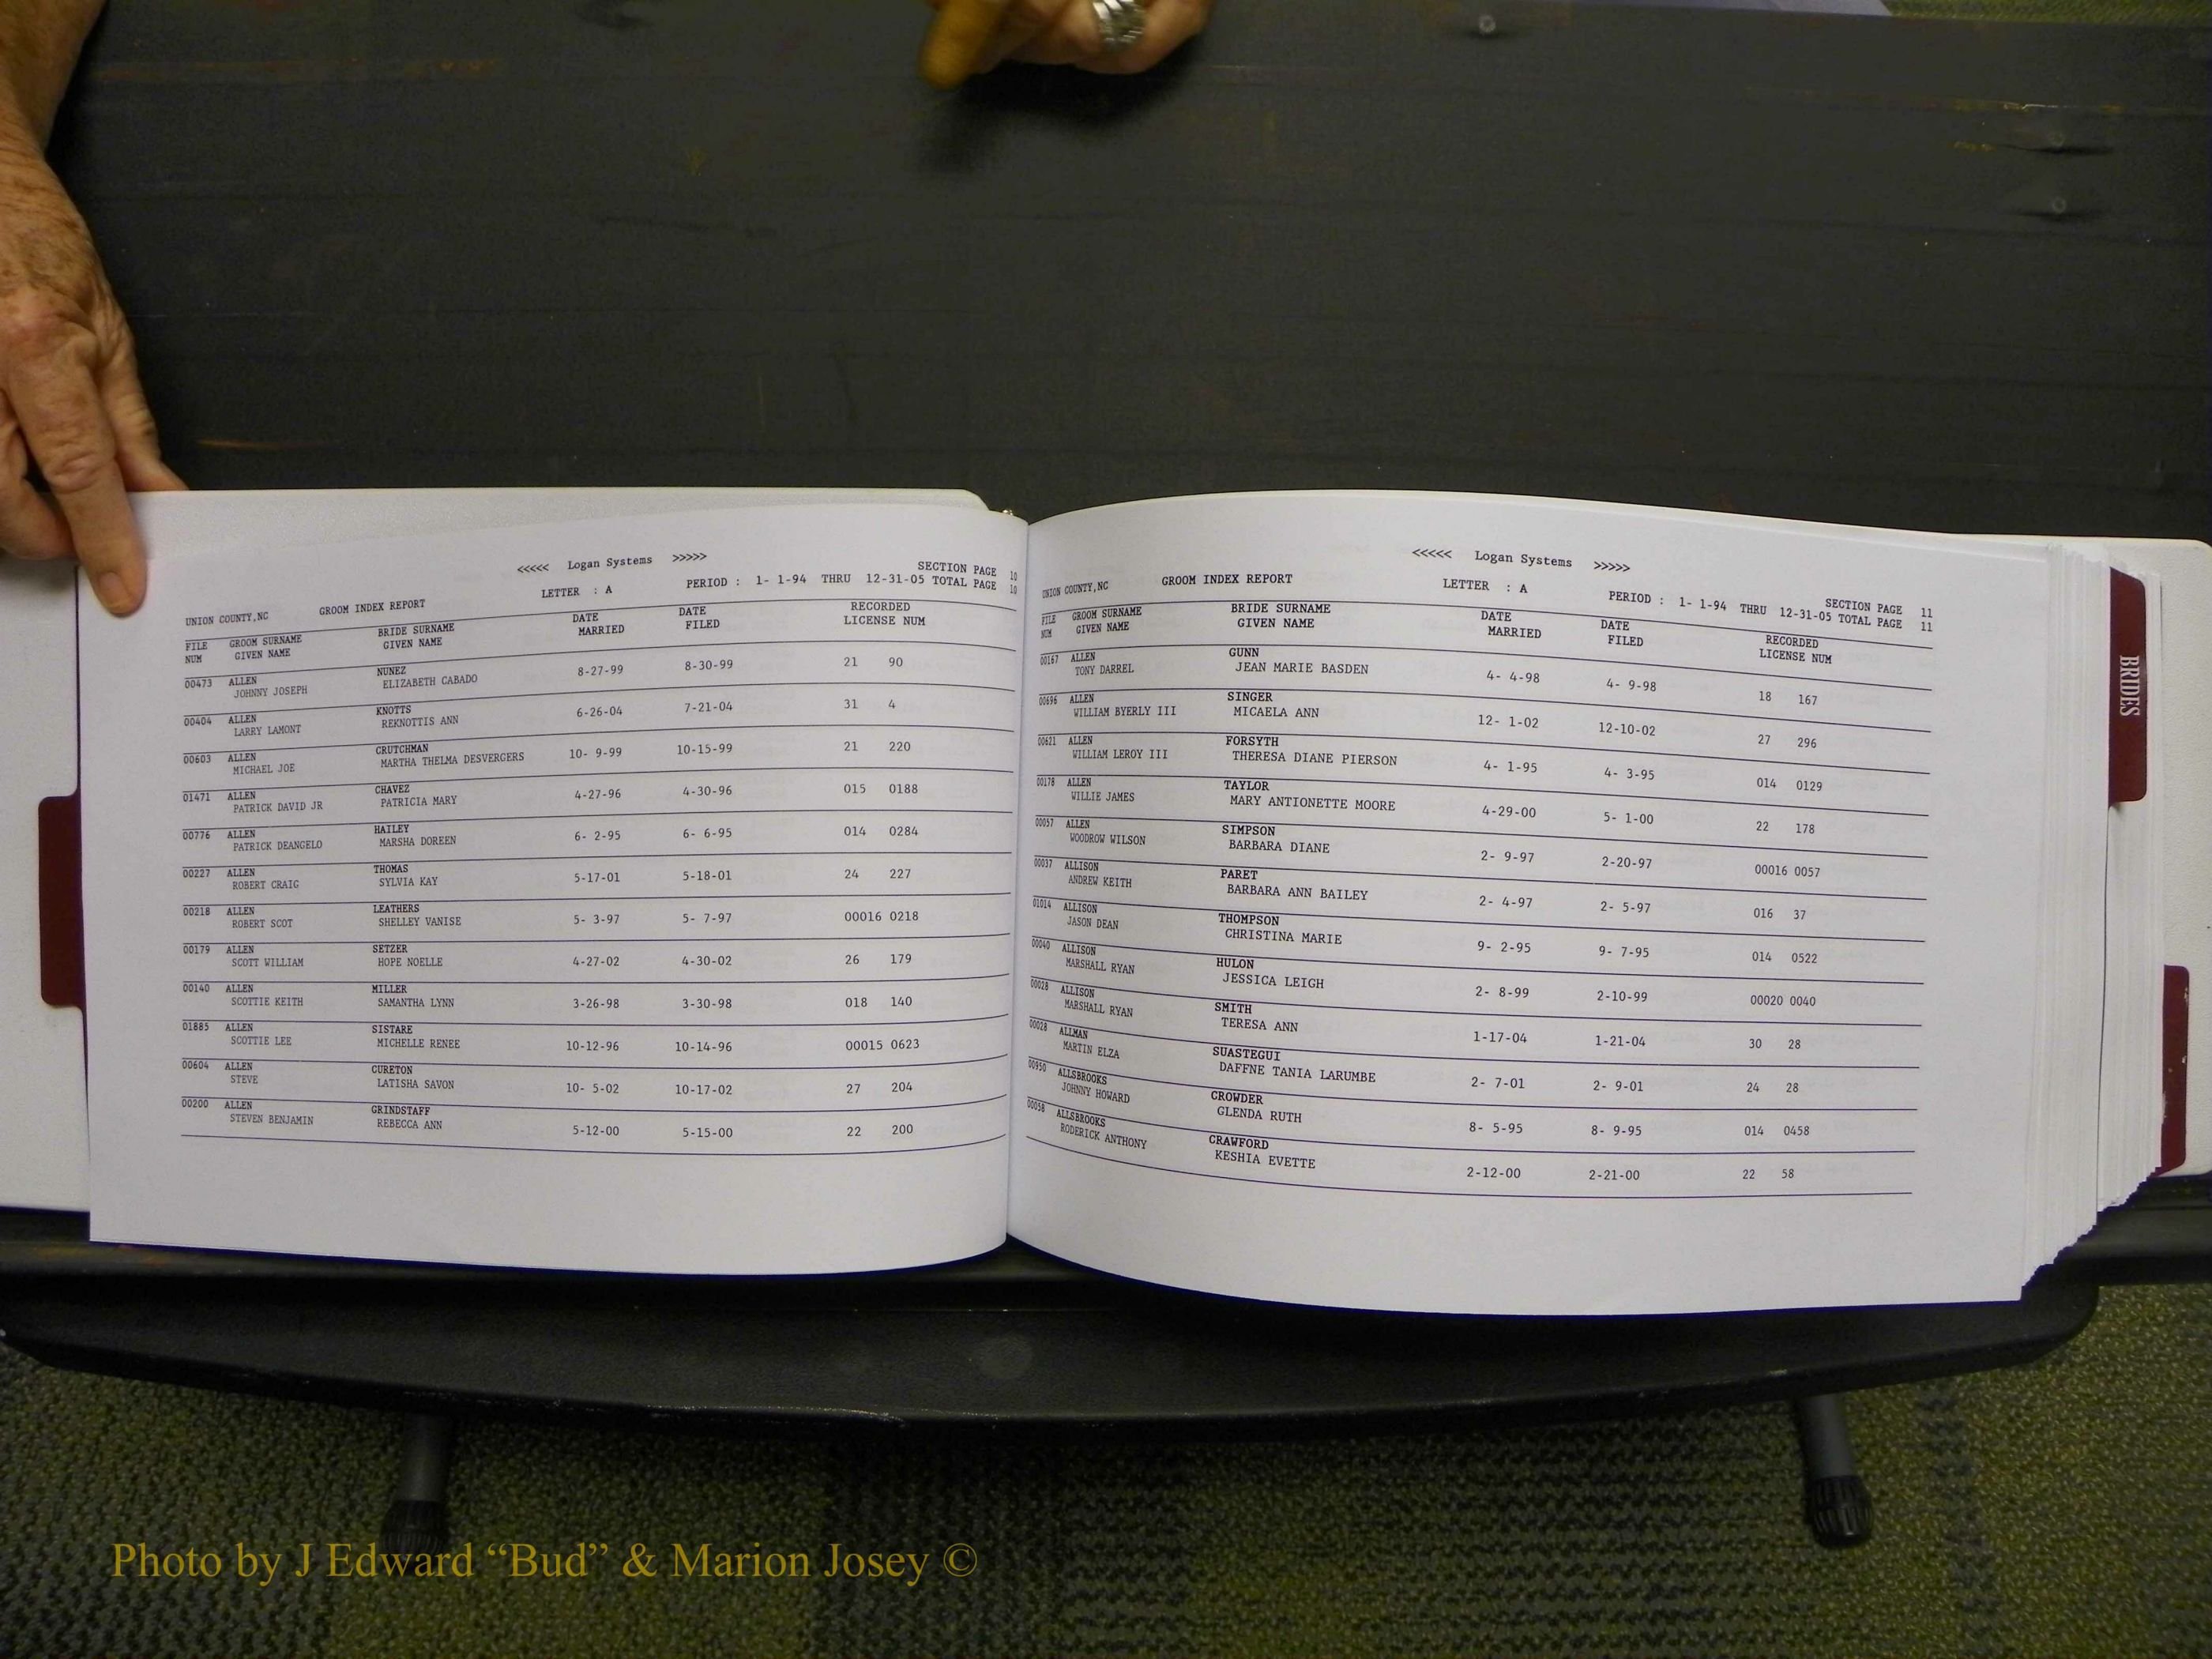 <<<<< Logan Systems >>>>>
SECTION PAGE 10
UNION COUNTY,NC GROOM INDEX REPORT LETTER : A PERIOD : 1- 1-94 THRU 12-31-05 TOTAL PAGE 10
FILE GROOM SURNAME BRIDE SURNAME DATE DATE RECORDED
NUM GIVEN NAME GIVEN NAME MARRIED FILED LICENSE NUM
00473 ALLEN NUNEZ 8-27-99 8-30-99 21 90
JOHNNY JOSEPH ELIZABETH CABADO
00404 ALLEN KNOTTS 6-26-04 7-21-04 31 4
LARRY LAMONT REKNOTTIS ANN
00603 ALLEN CRUTCHMAN 10- 9-99 10-15-99 21 220
MICHAEL JOE MARTHA THELMA DESVERGERS
01471 ALLEN CHAVEZ 4-27-96 4-30-96 015 0188
PATRICK DAVID JR PATRICIA MARY
00776 ALLEN HAILEY 6- 2-95 6- 6-95 014 0284
PATRICK DEANGELO MARSHA DOREEN
00227 ALLEN THOMAS 5-17-01 5-18-01 24 227
ROBERT CRAIG SYLVIA KAY
00218 ALLEN LEATHERS 5- 3-97 5- 7-97 00016 0218
ROBERT SCOT SHELLEY VANISE
00179 ALLEN SETZER 4-27-02 4-30-02 26 179
SCOTT WILLIAM HOPE NOELLE
00140 ALLEN MILLER 3-26-98 3-30-98 018 140
SCOTTIE KEITH SAMANTHA LYNN
01885 ALLEN SISTARE 10-12-96 10-14-96 00015 0623
SCOTTIE LEE MICHELLE RENEE
00604 ALLEN CURETON 10- 5-02 10-17-02 27 204
STEVE LATISHA SAVON
00200 ALLEN GRINDSTAFF 5-12-00 5-15-00 22 200
STEVEN BENJAMIN REBECCA ANN
<<<<< Logan Systems >>>>>
SECTION PAGE 11
UNION COUNTY,NC GROOM INDEX REPORT LETTER : A PERIOD : 1- 1-94 THRU 12-31-05 TOTAL PAGE 11
FILE GROOM SURNAME BRIDE SURNAME DATE DATE RECORDED
NUM GIVEN NAME GIVEN NAME MARRIED FILED LICENSE NUM
00167 ALLEN GUNN 4- 4-98 4- 9-98 18 167
TONY DARREL JEAN MARIE BASDEN
00696 ALLEN SINGER 12- 1-02 12-10-02 27 296
WILLIAM BYERLY III MICAELA ANN
00621 ALLEN FORSYTH 4- 1-95 4- 3-95 014 0129
WILLIAM LEROY III THERESA DIANE PIERSON
00178 ALLEN TAYLOR 4-29-00 5- 1-00 22 178
WILLIE JAMES MARY ANTIONETTE MOORE
00057 ALLEN SIMPSON 2- 9-97 2-20-97 00016 0057
WOODROW WILSON BARBARA DIANE
00037 ALLISON PARET 2- 4-97 2- 5-97 016 37
ANDREW KEITH BARBARA ANN BAILEY
01014 ALLISON THOMPSON 9- 2-95 9- 7-95 014 0522
JASON DEAN CHRISTINA MARIE
00040 ALLISON HULON 2- 8-99 2-10-99 00020 0040
MARSHALL RYAN JESSICA LEIGH
00028 ALLISON SMITH 1-17-04 1-21-04 30 28
MARSHALL RYAN TERESA ANN
00028 ALLMAN SUASTEGUI 2- 7-01 2- 9-01 24 28
MARTIN ELZA DAFFNE TANIA LARUMBE
00950 ALLSBROOKS CROWDER 8- 5-95 8- 9-95 014 0458
JOHNNY HOWARD GLENDA RUTH
00058 ALLSBROOKS CRAWFORD 2-12-00 2-21-00 22 58
RODERICK ANTHONY KESHIA EVETTE
BRIDES
Photo by J Edward “Bud” & Marion Josey ©